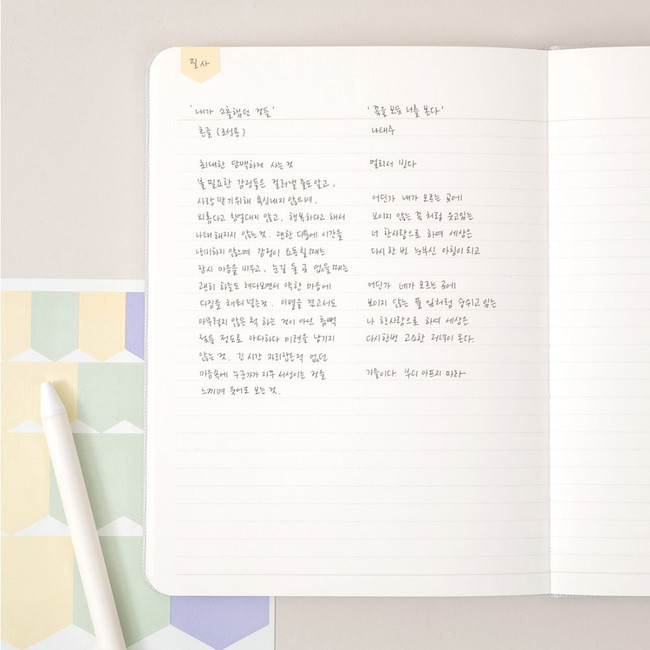 필사
'내가 소홀했던 것들'
흔글 (조성용)
최대한 담백하게 사는 것
불필요한 감정들은 걸러낼 줄도 알고,
사랑 받기 위해 욕심내지 않으며,
외롭다고 칭얼대지 않고, 행복하다고 해서
나태해지지 않는 것. 괜한 다툼에 시간을
낭비하지 않으며 감정이 요동칠 때는
잠시 마음을 비우고, 눈길 둘 곳 없을 때는
괜히 하늘도 쳐다보면서 약한 마음에
다짐을 해보는 것. 이별을 겪고서도
아무렇지 않은 척 하는 것이 아닌 흠뻑
젖을 정도로 아파하다 미련을 남기지
않는 것. 긴 시간 자리잡은 적 없던
마음속에 누군가가 자꾸 서성이는 것을
느끼며 웃어도 보는 것.
'꽃을 보듯 너를 본다'
나태주
멀리서 빈다
어딘가 내가 모르는 곳에
보이지 않는 꽃처럼 웃고 있는
너 한사람으로 하여 세상은
다시 한 번 눈부신 아침이 되고
어딘가 네가 모르는 곳에
보이지 않는 풀잎처럼 숨쉬고 있는
나 한사람으로 하여 세상은
다시 한번 고요한 저녁이 온다.
가을이다. 부디 아프지 마라-